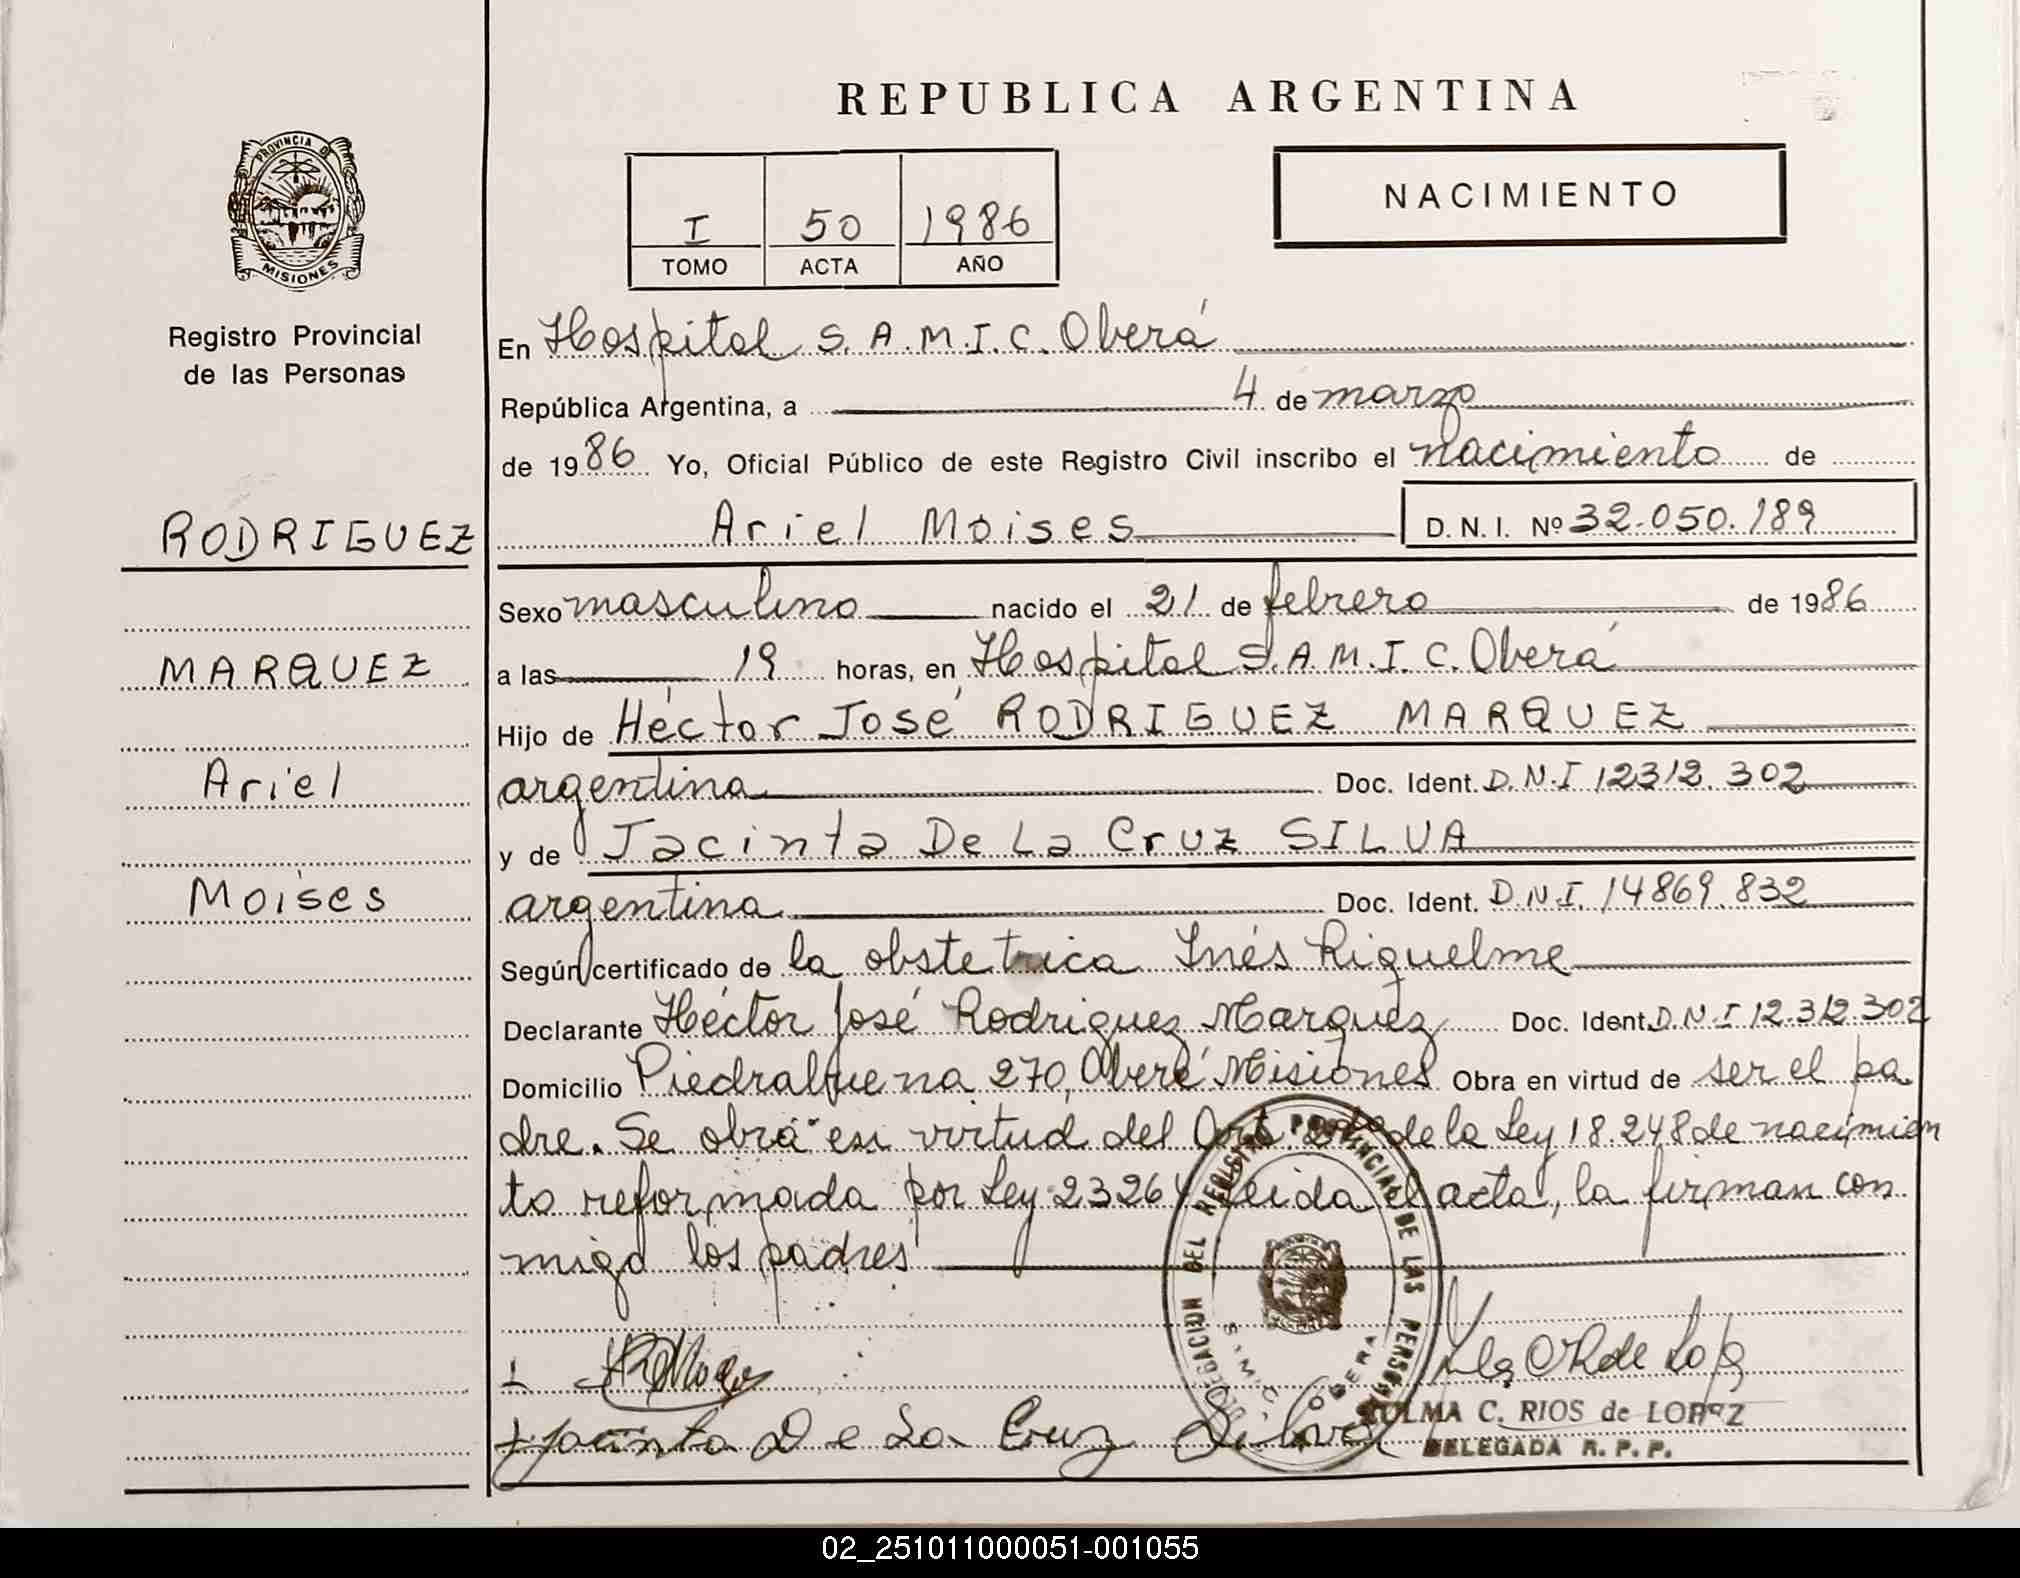 REPUBLICA ARGENTINA
PROVINCIA DE
MISIONES
Registro Provincial
de las Personas
I 50 1986
TOMO ACTA AÑO
NACIMIENTO
En Hospital S.A.M.I.C. Oberá
República Argentina, a 4 de marzo
de 1986 Yo, Oficial Público de este Registro Civil inscribo el nacimiento de
RODRIGUEZ
Ariel Moises D.N.I. Nº 32.050.189
Sexo masculino nacido el 21 de febrero de 1986
MARQUEZ
a las 19 horas, en Hospital S.A.M.I.C. Oberá
Hijo de Héctor José RODRIGUEZ MARQUEZ
Ariel
argentina Doc. Ident. D.N.I 12312.302
y de Jacinta De La Cruz SILVA
Moises
argentina Doc. Ident. D.N.I. 14869.832
Según certificado de la obstetrica Inés Riquelme
Declarante Héctor José Rodriguez Marquez Doc. Ident. D.N.I 12.312.302
Domicilio Piedrabuena 270, Oberá Misiones Obra en virtud de ser el pa
dre. Se obra en virtud del Art. de la Ley 18.248 de nacimien
to reformada por Ley 23264 leida el acta, la firman con
migo los padres
DELEGACION DEL REGISTRO PROVINCIAL DE LAS PERSONAS
OBERA
Jacinta De La Cruz Silva
ZULMA C. RIOS de LOPEZ
DELEGADA R. P. P.
02_251011000051-001055